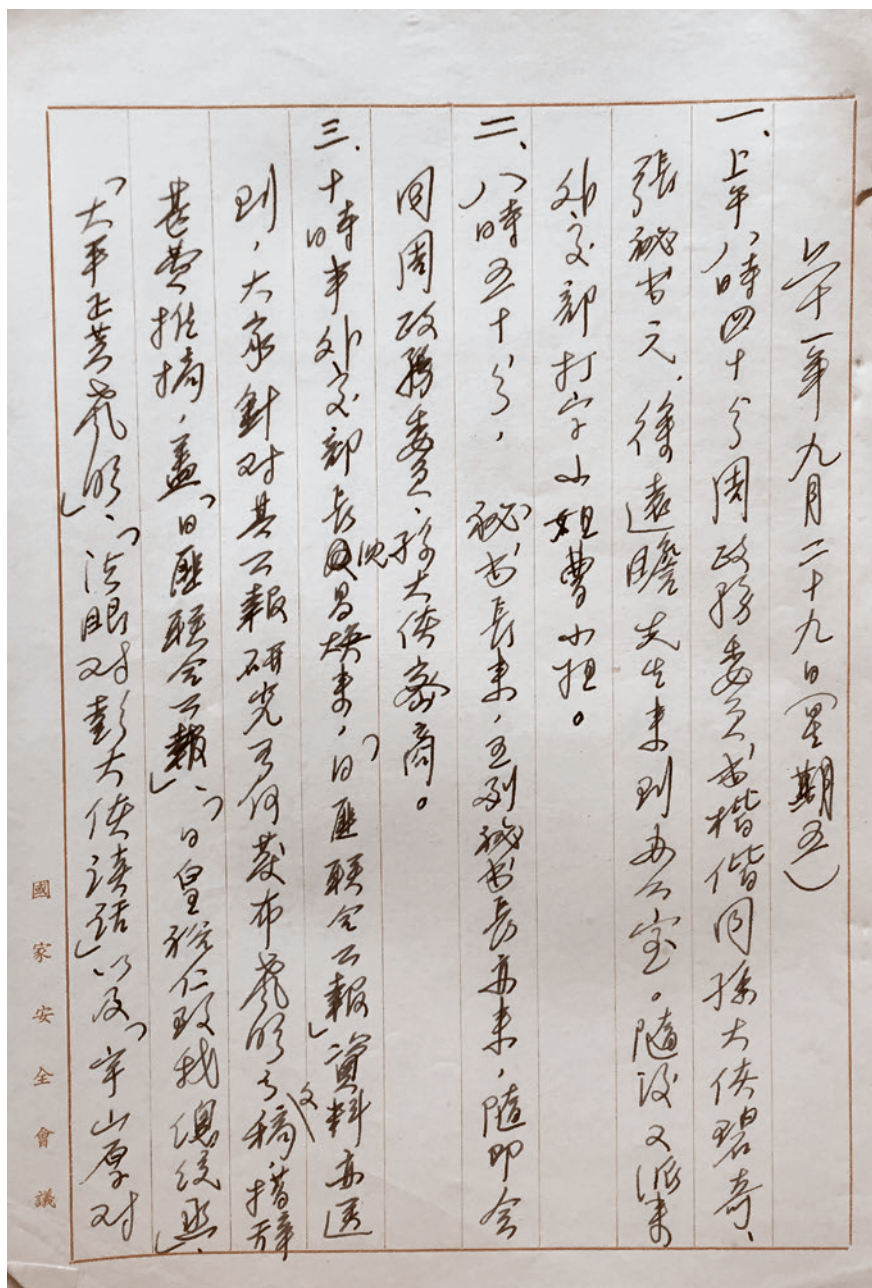 六十一年九月二十九日(星期五)
一、上午八時四十分周政務委員书楷偕同孫大使碧奇、
張秘书元、徐遠瞻先生来到办公室。隨後又派来
外交部打字小姐曹小姐。
二、八時五十分,秘书長来,五到秘书長亦来,隨即会
同周政務委員、孫大使密商。
三、十時半外交部長沈昌焕来,「日匪联合公報」資料亦送
到,大家針对其公報研究可何發布声明文稿,措辞
甚费推摘,盖「日匪联合公報」、「日皇裕仁致我總统」、
「大平正芳声明」、「法眼对彭大使談话」以及「宇山厚对
國家安全會議